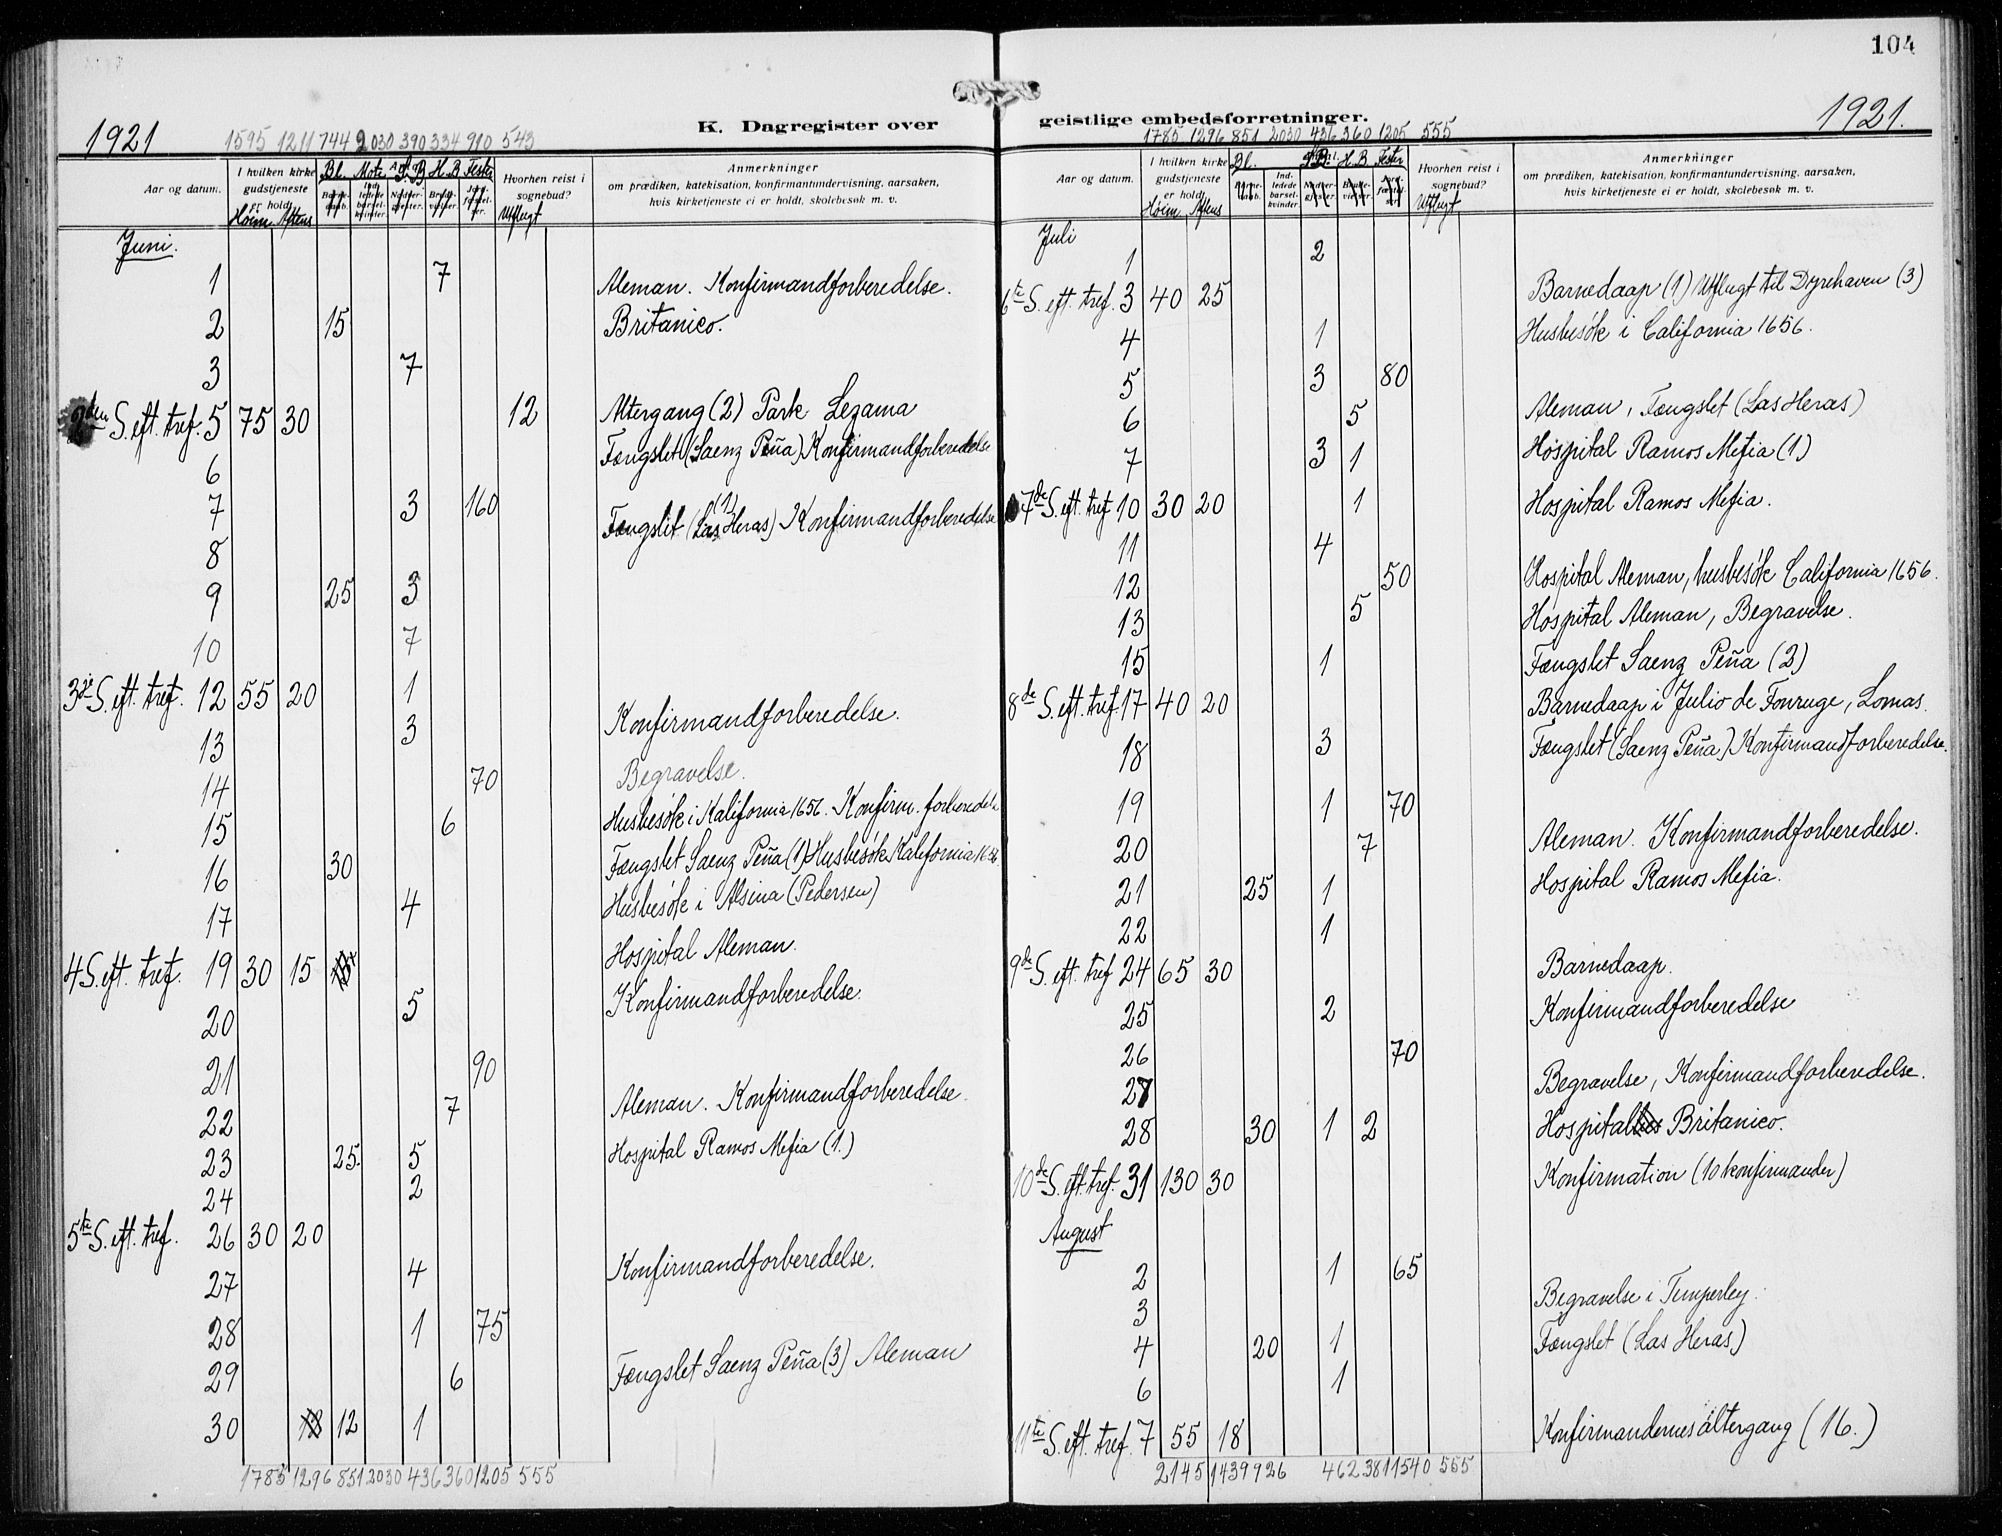 104
K. Dagregister over geistlige embedsforretninger.
1921
1595 1211 744 2030 390 334 910 543
Aar og datum.
I hvilken kirke gudstjeneste er holdt.
Høim. Aftens
Bl. Møte S.B H.B Fester
Hvorhen reist i sognebud?
Utflugt
Anmerkninger
om prædiken, katekisation, konfirmantundervisning, aarsaken,
hvis kirketjeneste ei er holdt, skolebesøk m. v.
Juni.
1 7 Aleman. Konfirmandforberedelse.
2 15 Britanico.
3 7
2den S. eft. tref. 5 75 30 12 Altergang (2) Park Lezama
6 Fængslet (Saenz Peña) Konfirmandforberedelse
7 3 160 Fængslet (Las Heras) (1) Konfirmandforberedelse
8
9 25 3
10 7
3dje S. eft. tref. 12 55 20 1
13 3 Konfirmandforberedelse.
14 70 Begravelse.
15 6 Husbesøk i Kalifornia 1656. Konfirm. forberedelse
16 30 Fængslet Saenz Peña (1) Husbesøk Kalifornia 1656
17 4 Husbesøk i Alsina (Pedersen)
4 S. eft. tref. 19 30 15 Hospital Aleman.
20 5 Konfirmandforberedelse.
21 90
22 7 Aleman. Konfirmandforberedelse.
23 25. 5 Hospital Ramos Mefia (1.)
24 2
5te S. eft. tref. 26 30 20
27 4 Konfirmandforberedelse.
28 1 75
29 6 Fængslet Saenz Peña (3) Aleman
30 18 12 1
1785 1296 851 2030 436 360 1205 555
1921.
1785 1296 851 2030 436 360 1205 555
Aar og datum.
I hvilken kirke gudstjeneste er holdt
Høim. Aftens
Bl. S.B. H.B Fester
Indledede barselkvinder.
Hvorhen reist i sognebud?
Utflugt
Anmerkninger
om prædiken, katekisation, konfirmantundervisning, aarsaken,
hvis kirketjeneste ei er holdt, skolebesøk m. v.
Juli
1 2
6te S. eft. tref. 3 40 25 Barnedaap (1) Utflugt til Dyrehaven (3)
4 1 Husbesøk i California 1656.
5 3 80
6 5 Aleman, Fængslet (Las Heras)
7 3 1 Hospital Ramos Mefia (1.)
7de S. eft. tref 10 30 20 1 Hospital Ramos Mefia.
11 4
12 50 Hospital Aleman, husbesøk California 1656.
13 5 Hospital Aleman, Begravelse.
15 1 Fængslet Saenz Peña (2)
8de S. eft. tref. 17 40 20 Barnedaap i Julio de Fonruge, Lomas.
18 3 Fængslet (Saenz Peña) Konfirmandforberedelse.
19 1 70
20 7 Aleman. Konfirmandforberedelse.
21 25 1 Hospital Ramos Mefia.
22 1
9de S. eft. tref 24 65 30 Barnedaap.
25 2 Konfirmandforberedelse
26 70
27 Begravelse, Konfirmandforberedelse.
28 30 1 2 Hospital Britanico.
10de S. eft. tref. 31 130 30 Konfirmation (10 konfirmander)
August
2 1 65
3 Begravelse i Temperley.
4 20 1 Fængslet (Las Heras.)
6 1
11te S. eft. tref. 7 55 18 Konfirmandernes altergang (16.)
2145 1439 926 462 381 1540 555